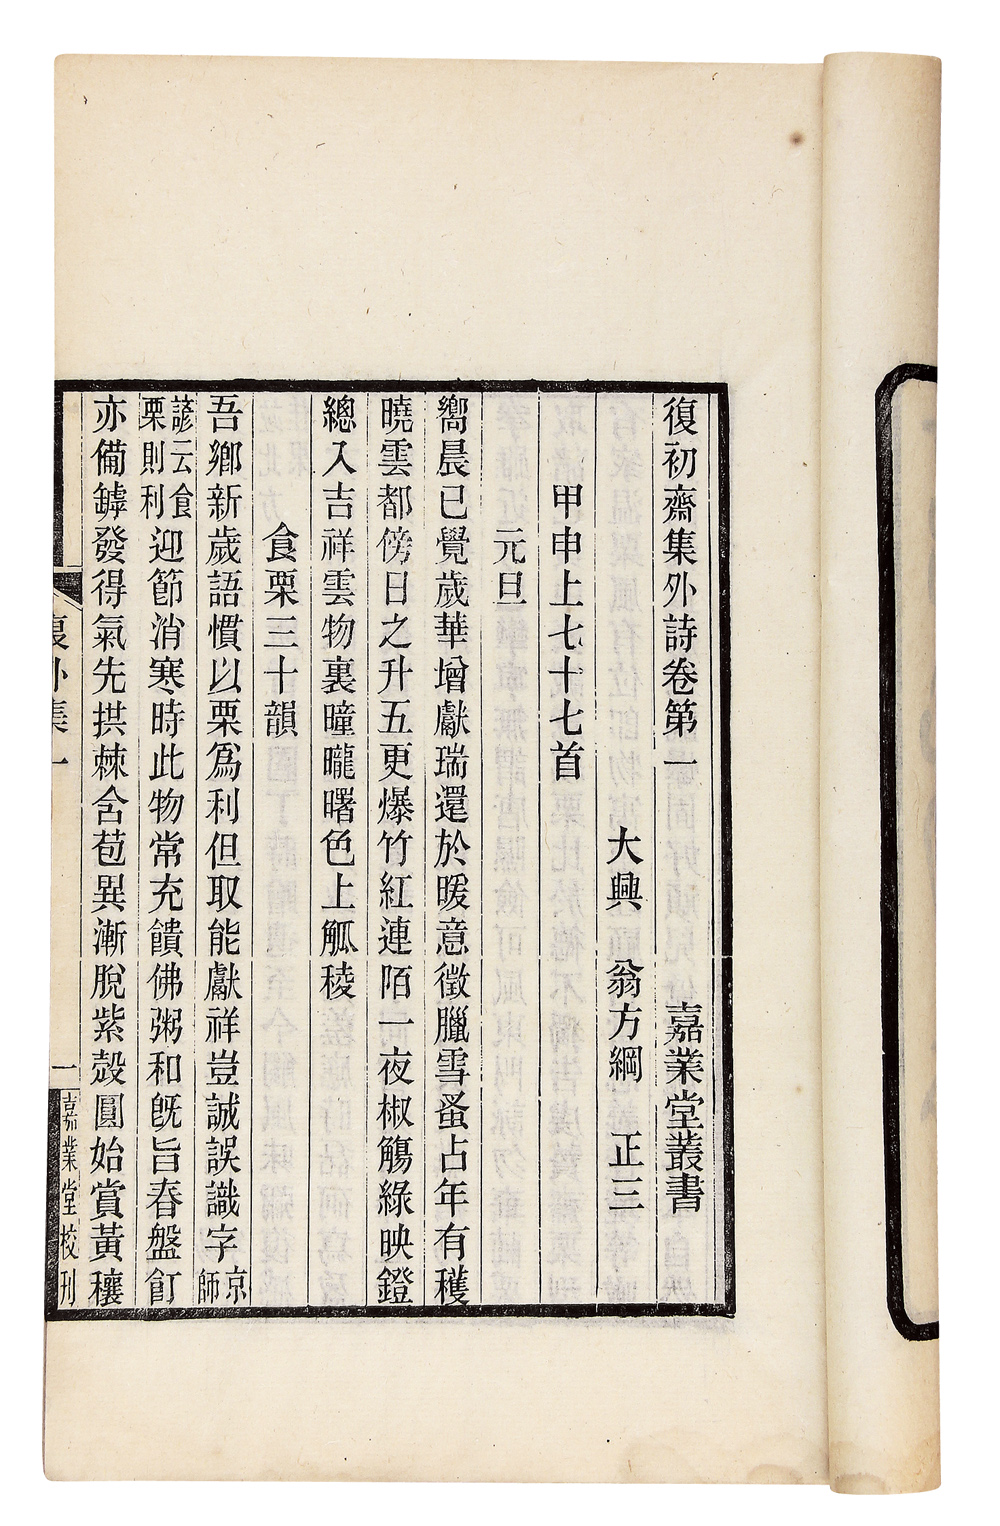 復初齋集外詩卷第一　嘉業堂叢書
大興　翁方綱　正三
甲申上七十七首
元旦
嚮晨已覺歲華增獻瑞還於暖意徵臘雪蚤占年有穫
曉雲都傍日之升五更爆竹紅連陌一夜椒觴綠映鐙
總入吉祥雲物裏曈曨曙色上觚稜
食栗三十韻
吾鄉新歲語慣以栗爲利但取能獻祥豈誠誤識字京師
諺云食栗則利迎節消寒時此物常充饋佛粥和旣旨春盤飣
亦備罅發得氣先拱棘含苞異漸脫紫殼圓始賞黃穰
復外集一
一
嘉業堂校刊